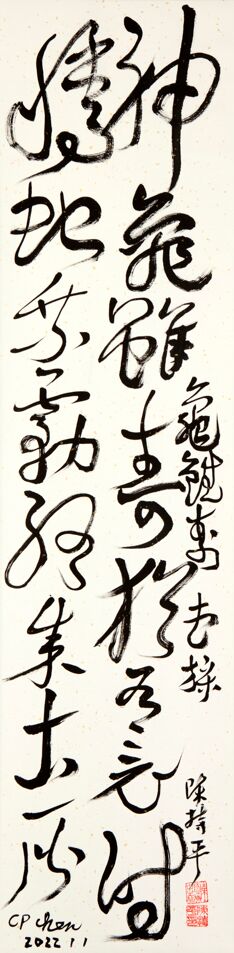 神龜雖壽猶有竟時
騰蛇乘霧終成土灰
龜雖壽 曹操
陳持平
CP Chen
2022 11